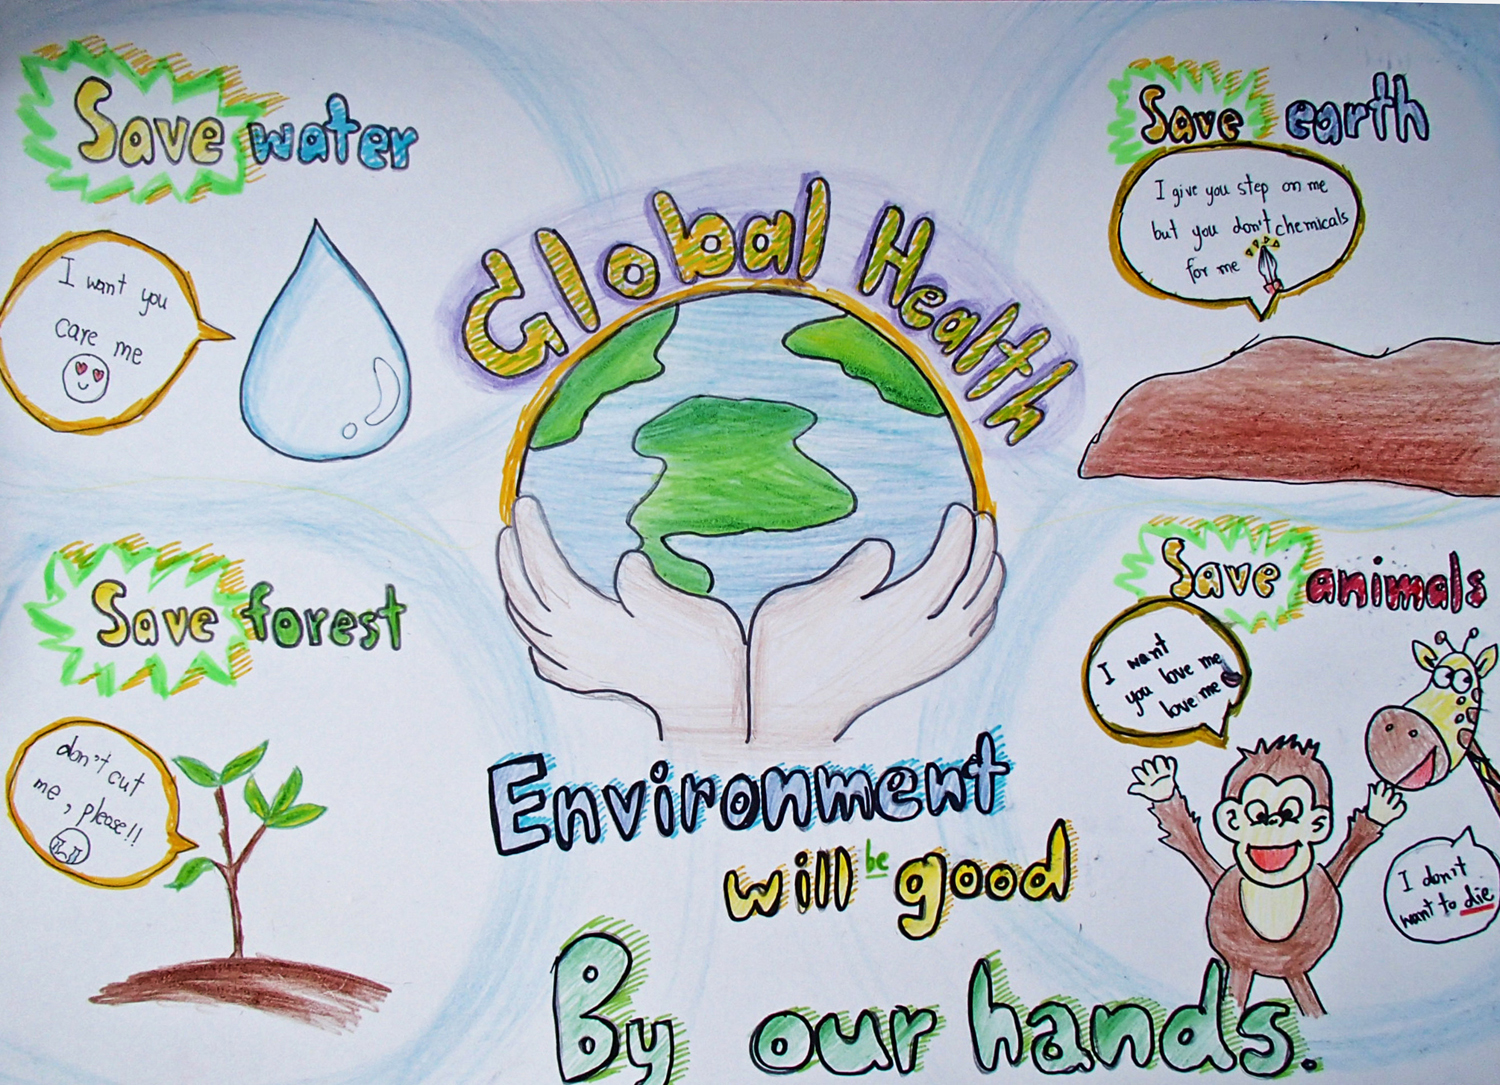 Save water
I want you
care me
Global Health
Save earth
I give you step on me
but you don't chemicals
for me
Save forest
don't cut
me, please!!
Save animals
I want
you love me
love me
I don't
want to die
Environment
will be good
By our hands.